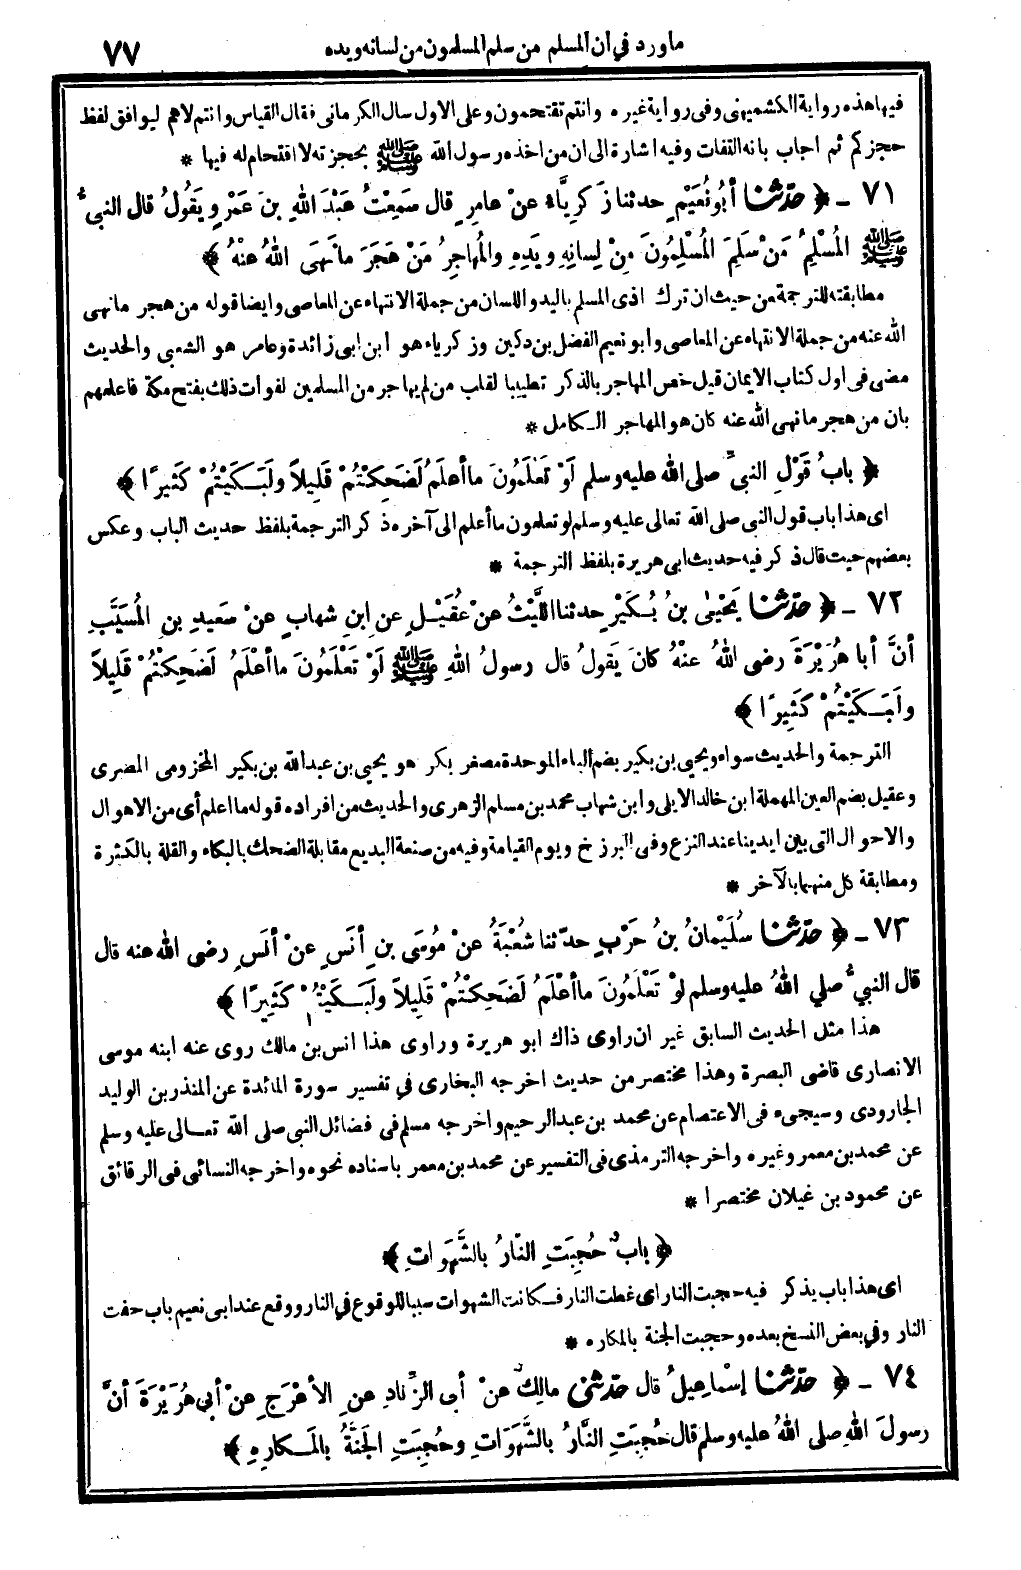 ما ورد في أن المسلم من سلم المسلمون من لسانه ويده
٧٧
فيها هذه رواية الكشميهني وفي رواية غيره وانتم تقتحمون وعلى الاول سال الكرماني فقال القياس وانتم لا هم ليوافق لفظ
حجزكم ثم اجاب بانه التفات وفيه اشارة الى ان من اخذه رسول الله ﷺ بحجزته لا اقتحام له فيها *
٧١ ـ ﴿ حَدَّثَنَا أَبُو نُعَيْمٍ حدثنا زَكَرِيَّاءُ عنْ عامِرٍ قال سَمِعْتُ عَبْدَ اللهِ بنَ عَمْرٍو يَقُولُ قال النبيُّ
ﷺ المُسْلِمُ مَنْ سَلِمَ المُسْلِمُونَ مِنْ لِسانِهِ ويَدِهِ والمُهاجِرُ مَنْ هَجَرَ ما نَهَى اللهُ عنْهُ ﴾
مطابقته للترجمة من حيث ان ترك اذى المسلم باليد واللسان من جملة الانتهاء عن المعاصي وايضا قوله من هجر ما نهى
الله عنه من جملة الانتهاء عن المعاصي وابو نعيم الفضل بن دكين وزكرياء هو ابن ابي زائدة وعامر هو الشعبي والحديث
مضى في اول كتاب الايمان قيل خص المهاجر بالذكر تطييبا لقلب من لم يهاجر من المسلمين لفوات ذلك بفتح مكة فاعلمهم
بان من هجر ما نهى الله عنه كان هو المهاجر الكامل *
﴿ بابُ قَوْلِ النبيِّ صلى الله عليه وسلم لَوْ تَعْلَمُونَ ما أعلَمُ لَضَحِكْتُمْ قَلِيلاً ولَبَكَيْتُمْ كَثِيرًا ﴾
اى هذا باب قول النبي صلى الله تعالى عليه وسلم لو تعلمون ما أعلم الى آخره ذكر الترجمة بلفظ حديث الباب وعكس
بعضهم حيث قال ذكر فيه حديث ابي هريرة بلفظ الترجمة *
٧٢ ـ ﴿ حَدَّثَنَا يَحْيٰى بنُ بُكَيْرٍ حدثنا اللَّيْثُ عنْ عُقَيْلٍ عنِ ابنِ شهابٍ عنْ سَعِيدِ بنِ المُسَيَّبِ
أنَّ أبا هُرَيْرَةَ رضى اللهُ عنْهُ كانَ يَقُولُ قال رسولُ اللهِ ﷺ لَوْ تَعْلَمُونَ ما أعْلَمُ لَضَحِكْتُمْ قَلِيلاً
ولَبَكَيْتُمْ كَثِيرًا ﴾
الترجمة والحديث سواء ويحيى بن بكير بضم الباء الموحدة مصغر بكر هو يحيى بن عبد الله بن بكير المخزومى المصرى
وعقيل بضم العين المهملة ابن خالد الايلى وابن شهاب محمد بن مسلم الزهرى والحديث من افراده قوله ما اعلم أى من الاهوال
والاحوال التى بين ايدينا عند النزع وفى البرزخ ويوم القيامة وفيه من صنعة البديع مقابلة الضحك بالبكاء والقلة بالكثرة
ومطابقة كل منهما بالآخر *
٧٣ ـ ﴿ حَدَّثَنَا سُلَيْمانُ بنُ حَرْبٍ حدّثنا شُعْبَةُ عنْ مُوسَى بنِ أنَسٍ عنْ أنَسٍ رضى الله عنه قال
قال النبيُّ صلي اللهُ عليه وسلم لَوْ تَعْلَمُونَ ما أعْلَمُ لَضَحِكْتُمْ قَلِيلاً ولَبَكَيْتُمْ كَثِيرًا ﴾
هذا مثل الحديث السابق غير ان راوى ذاك ابو هريرة وراوى هذا انس بن مالك روى عنه ابنه موسى
الانصارى قاضى البصرة وهذا مختصر من حديث اخرجه البخارى في تفسير سورة المائدة عن المنذر بن الوليد
الجارودى وسيجىء فى الاعتصام عن محمد بن عبد الرحيم واخرجه مسلم فى فضائل النبي صلى الله تعالى عليه وسلم
عن محمد بن معمر وغيره واخرجه الترمذى فى التفسير عن محمد بن معمر باسناده نحوه واخرجه النسائى فى الرقائق
عن محمود بن غيلان مختصرا *
﴿ بابٌ حُجِبَتِ النّارُ بالشَّهَوَاتِ ﴾
اى هذا باب يذكر فيه حجبت النار اى غطت النار فكانت الشهوات سببا للوقوع في النار ووقع عند ابى نعيم باب حفت
النار وفي بعض النسخ بعده وحجبت الجنة بالمكاره *
٧٤ ـ ﴿ حَدَّثَنَا إسْماعِيلُ قال حَدَّثَنى مالِكٌ عنْ أبى الزّنادِ عنِ الأعْرَجِ عنْ أبي هُرَيْرَةَ أنَّ
رسولَ اللهِ صلى اللهُ عليه وسلم قال حُجِبَتِ النَّارُ بالشَّهَوَاتِ وحُجِبَتِ الجَنَّةُ بالمَكارِهِ ﴾